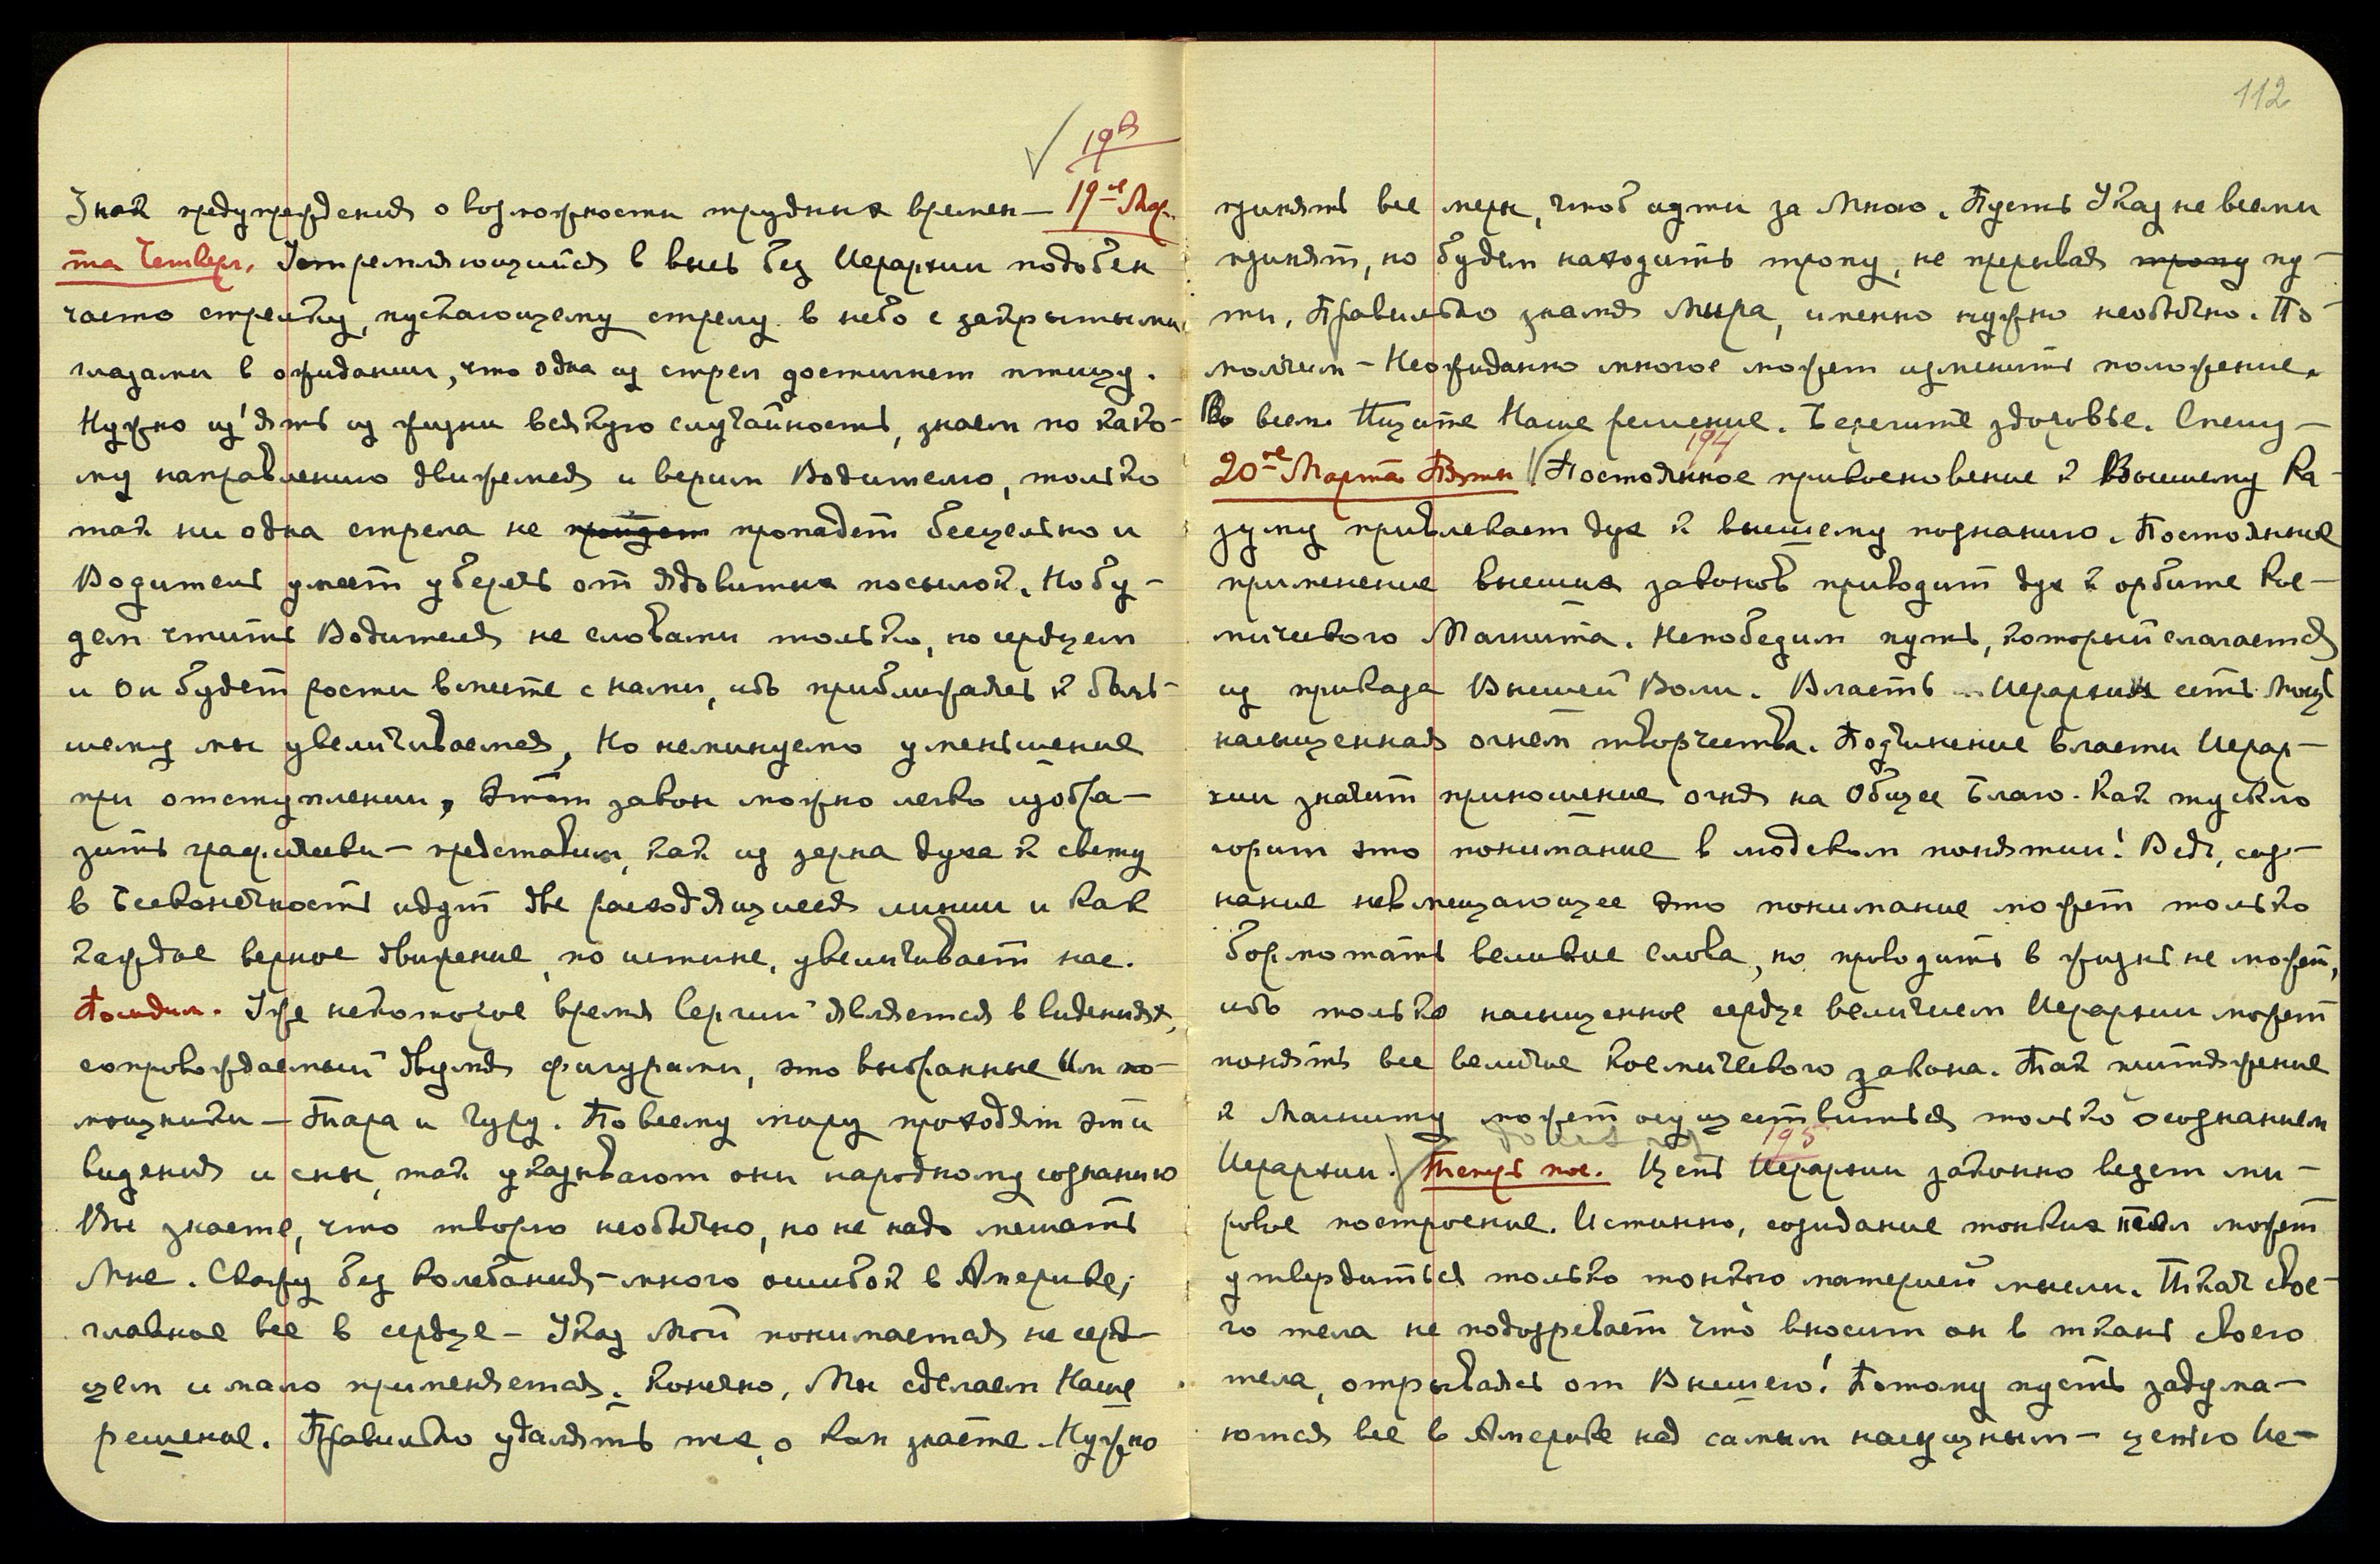 112
193
Знак предупреждения о возможности трудных времен — 19-е Мар-
та Четверг. Устремляющийся в высь без Иерархии подобен
часто стрелку, пускающему стрелу в небо с закрытыми
глазами в ожидании, что одна из стрел достигнет птицу.
Нужно из'ять из жизни всякую случайность, знаем по како-
му направлению движемся и верим Водителю, только
так ни одна стрела не пропадет бесцельно и
Водитель умеет уберечь от ядовитых посылок. Но бу-
дем чтить Водителя не словами только, но сердцем
и Он будет расти вместе с нами, ибо приближаясь к боль-
шему мы увеличиваемся, но неминуемо уменьшение
при отступлении, этот закон можно легко изобра-
зить графически — представим, как из зерна духа к свету
в Бесконечность идут две расходящиеся линии и как
каждое верное движение, по истине, увеличивает нас.
Посидим. Уже некоторое время Сергий является в видениях,
сопровождаемый двумя фигурами, это выбранные Им по-
мощники — Тара и Гуру. По всему миру проходят эти
видения и сны, так указывают они народному сознанию
Вы знаете, что творю необычно, но не надо мешать
Мне. Скажу без колебания — много ошибок в Америке,
главное все в сердце — Указ Мой понимается не серд-
цем и мало применяется. Конечно, Мы сделаем Наше
решение. Правильно удалять тех, о ком знаете. Нужно
принять все меры, чтоб идти за Мною. Пусть Указ не всеми
принят, но будем находить тропу, не прерывая тропу пу-
ти. Правильно знамя Мира, именно нужно необычно. По-
молчим — Неожиданно многое может изменить положение.
Во всем Ищите Наше решение. Берегите здоровье. Спешу —
194
20-ое Марта Пятн. Постоянное прикосновение к Высшему Ра-
зуму привлекает дух к высшему познанию. Постоянное
применение высших законов приводит дух к орбите Кос-
мического Магнита. Непобедим путь, который слагается
из приказа Высшей Воли. Власть Иерархии есть мощь
насыщенная огнем творчества. Подчинение власти Иерар-
хии значит приношение огня на Общее Благо. Как тускло
горит это понимание в людском понятии! Ведь, соз-
нание невмещающее это понимание может только
бормотать великие слова, но проводить в жизнь не может,
ибо только насыщенное сердце величием Иерархии может
понять все величие Космического закона. Так притяжение
к Магниту может осуществиться только осознанием
195
Иерархии. Теперь пос. Цепь Иерархии законно ведет ми-
ровое построение. Истинно, созидание тонких тел может
утвердиться только тонкою материей мысли. Ткач свое-
го тела не подозревает что вносит он в ткань своего
тела, отрываясь от Высшего! Потому пусть задума-
ются все в Америке над самым насущным — цепью Ие-